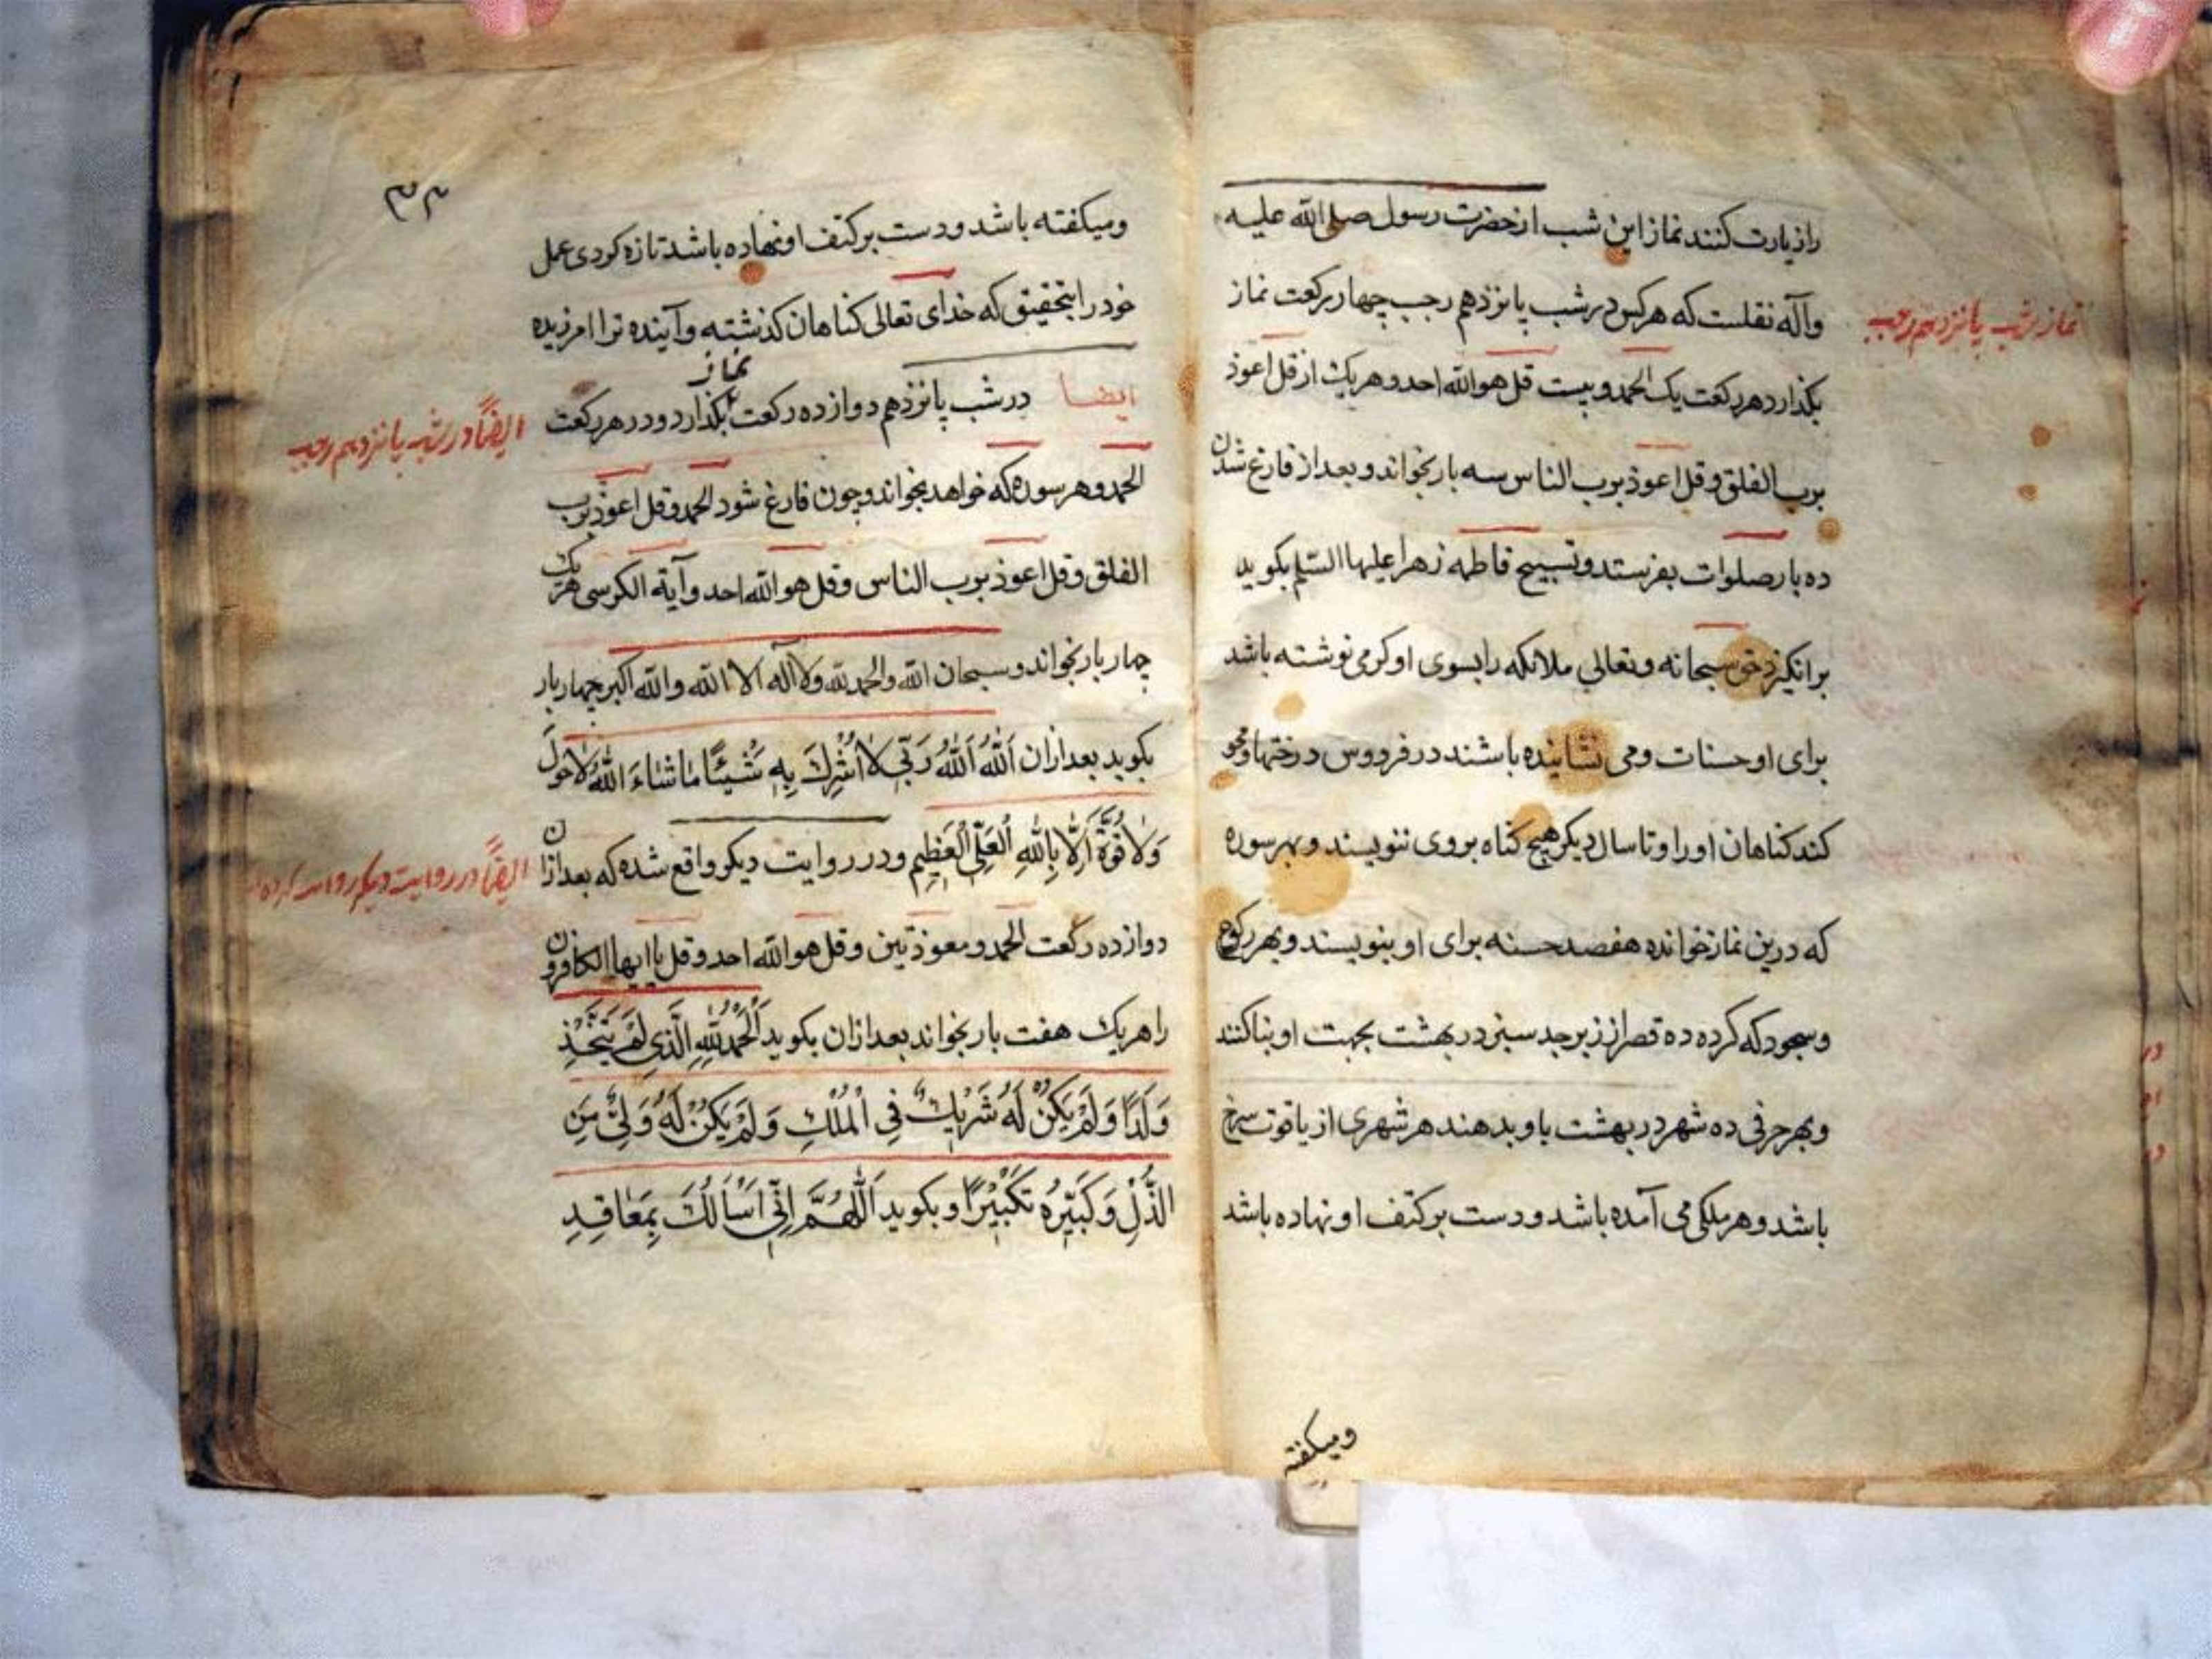 را زیارت کنند نماز این شب از حضرت رسول صلی الله علیه
وآله نقلست که هرکس در شب پانزدهم رجب چهار رکعت نماز
نماز شب پانزدهم رجب
بگذارد هر رکعت یک الحمد و بیست قل هو الله احد و هریک از قل اعوذ
برب الفلق و قل اعوذ برب الناس سه بار بخواند و بعد از فارغ شدن
ده بار صلوات بفرستد و تسبیح فاطمه زهرا علیها السلم بکوید
برانکیزد حق سبحانه و تعالی ملائکه را بسوی او کرمی نوشته باشد
برای او حسنات ومی نشانیده باشند در فردوس درختها و محو
کند کناهان او را و تا سال دیکر هیچ کناه بروی ننویسند و بهر سوره
که درین نماز خوانده هفصد حسنه برای او بنویسند و بهر رکوع
و سجود که کرده ده قصر از زبرجد سبز در بهشت بجهت او بنا کنند
و بهر حرفی ده شهر در بهشت باو بدهند هر شهری از یاقوت سرخ
باشد و هر ملکی می آمده باشد و دست بر کتف او نهاده باشد
ومیکفته
۳۳
ومیکفته باشد و دست بر کتف او نهاده باشد تازه کردی عمل
خود را بتحقیق که خدای تعالی کناهان کذشته و آینده ترا امرزیده
ایضا در شب پانزدهم دوازده رکعت نماز بکذارد و در هر رکعت
ایضًا در شب پانزدهم رجب
الحمد و هر سوره که خواهد بخواند و چون فارغ شود الحمد و قل اعوذ برب
الفلق و قل اعوذ برب الناس و قل هو الله احد و آیة الکرسی هر یک
چهار بار بخواند و سبحان الله والحمد لله ولا آله الا الله والله اکبر چهار بار
بکوید بعد ازان اَللّٰهُ اَللّٰهُ رَبّی لا اُشْرِكَ بِهِ شَیْئًا مَا شاءَ اللّٰهُ لا حَولَ
وَلا قُوَّةَ اِلّا بِاللّٰهِ الْعَلِیِّ الْعَظِیمِ و در روایت دیکر واقع شده که بعد ازان
ایضًا در روایت دیکر
دوازده رکعت الحمد و معوذتین و قل هو الله احد و قل یا ایها الکافرون
را هریک هفت بار بخواند بعد ازان بکوید اَلْحَمْدُ لِلّٰهِ الَّذی لَمْ یَتَّخِذْ
وَلَدًا وَلَمْ یَکُنْ لَهُ شَرِیكٌ فِی الْمُلْكِ وَلَمْ یَکُنْ لَهُ وَلِیٌّ مِنَ
الذُّلِّ وَکَبِّرْهُ تَکْبِیْرًا و بکوید اَللّٰهُمَّ اِنّی اَسْاَلُكَ بِمَعَاقِدِ